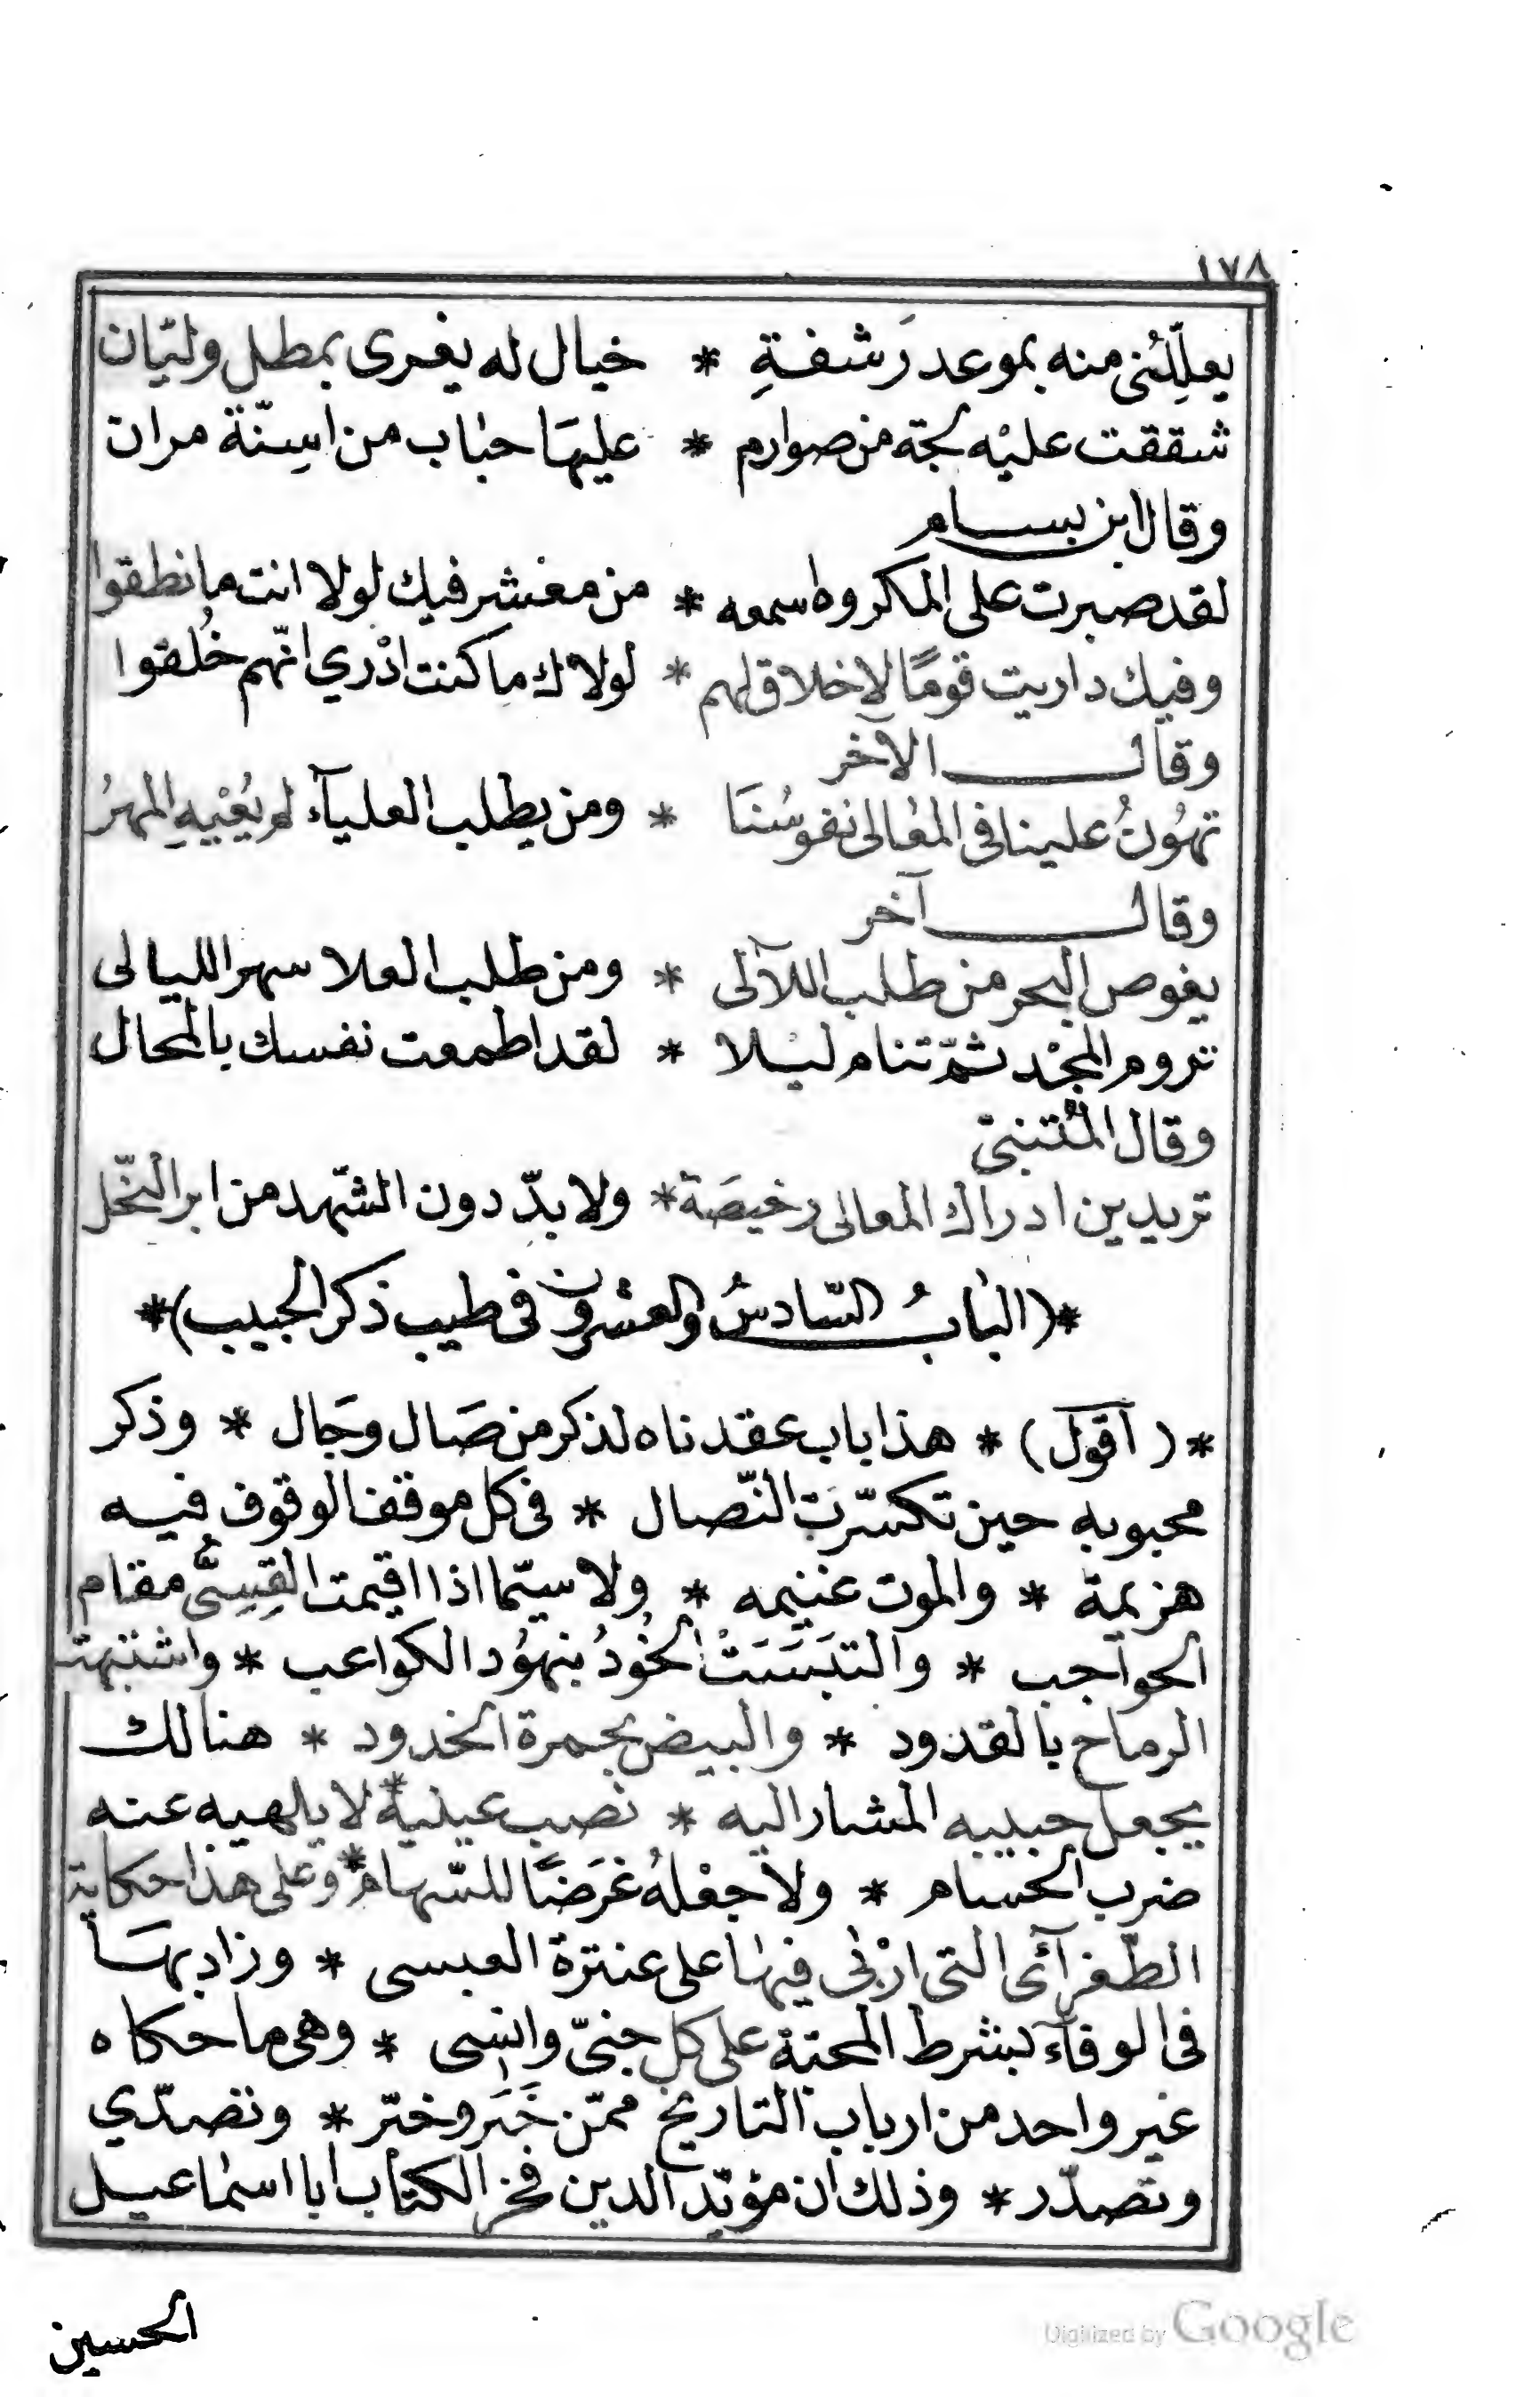 ١٧٨
يعلِّلُنى منه بموعد رَشفةِ * خيال له يغرى بمطل وليّان
شققت عليْه لجة من صوارم * عليهَا حباب من اسِنّة مران
وقال ابن بسام
لقد صبرت على المكروه اسمعه * من معشر فيك لولا انت ما نطقوا
وفيك داريت قومًا لا خلاق لهم * لولاك ما كنت ادْري انّهم خُلقوا
وقال الآخر
تهُونُ علينا فى المعالى نفوسُنَا * ومن يطلب العليآء لم يُغْلِهِ المهرُ
وقال آخر
يغوص البحر من طلب اللآلى * ومن طلب العلا سهر الليالى
تروم المجْد ثمّ تنام ليْلا * لقد اطمعت نفسك بالمحال
وقال المُتنبىّ
تريدين ادراك المعالى رخيصَة * ولا بدّ دون الشّهد من ابر النّحل
*(البابُ السّادسُ والعشرون فى طيب ذكر الحبيب)*
*(اقول)* هذا باب عقدناه لذكر من صَال وجَال * وذكر
محبوبه حين تكسّرتِ النّصال * فى كل موقف الوقوف فيه
هزيمة * والموت غنيمه * ولا سيّما اذا اقيمت القِسِىُّ مقام
الحواجب * والتبَسَتْ الخُودُ بنهُود الكواعب * واشتبهت
الرماح بالقدود * والبيض بحمرة الخدود * هنالك
يجعل حبيبه المشار اليه * نصب عينيه * لا يلهيه عنه
ضرب الحسام * ولا جعْلهُ غَرَضًا للسّهام * وعلى هذا حكاية
الطّغرآئى التى ارْبى فيها على عنترة العبسى * وزاد بهَا
فى الوفآء بشرط المحبّة على كل جنىّ وانسِى * وهى ما حكاه
غير واحد من ارباب التاريخ ممّن خَبَر وخبّر * وتصدّي
وتصدّر * وذلك ان مؤيّد الدين فخر الكتّاب ابا اسماعيل
الحسين
Digitized by Google